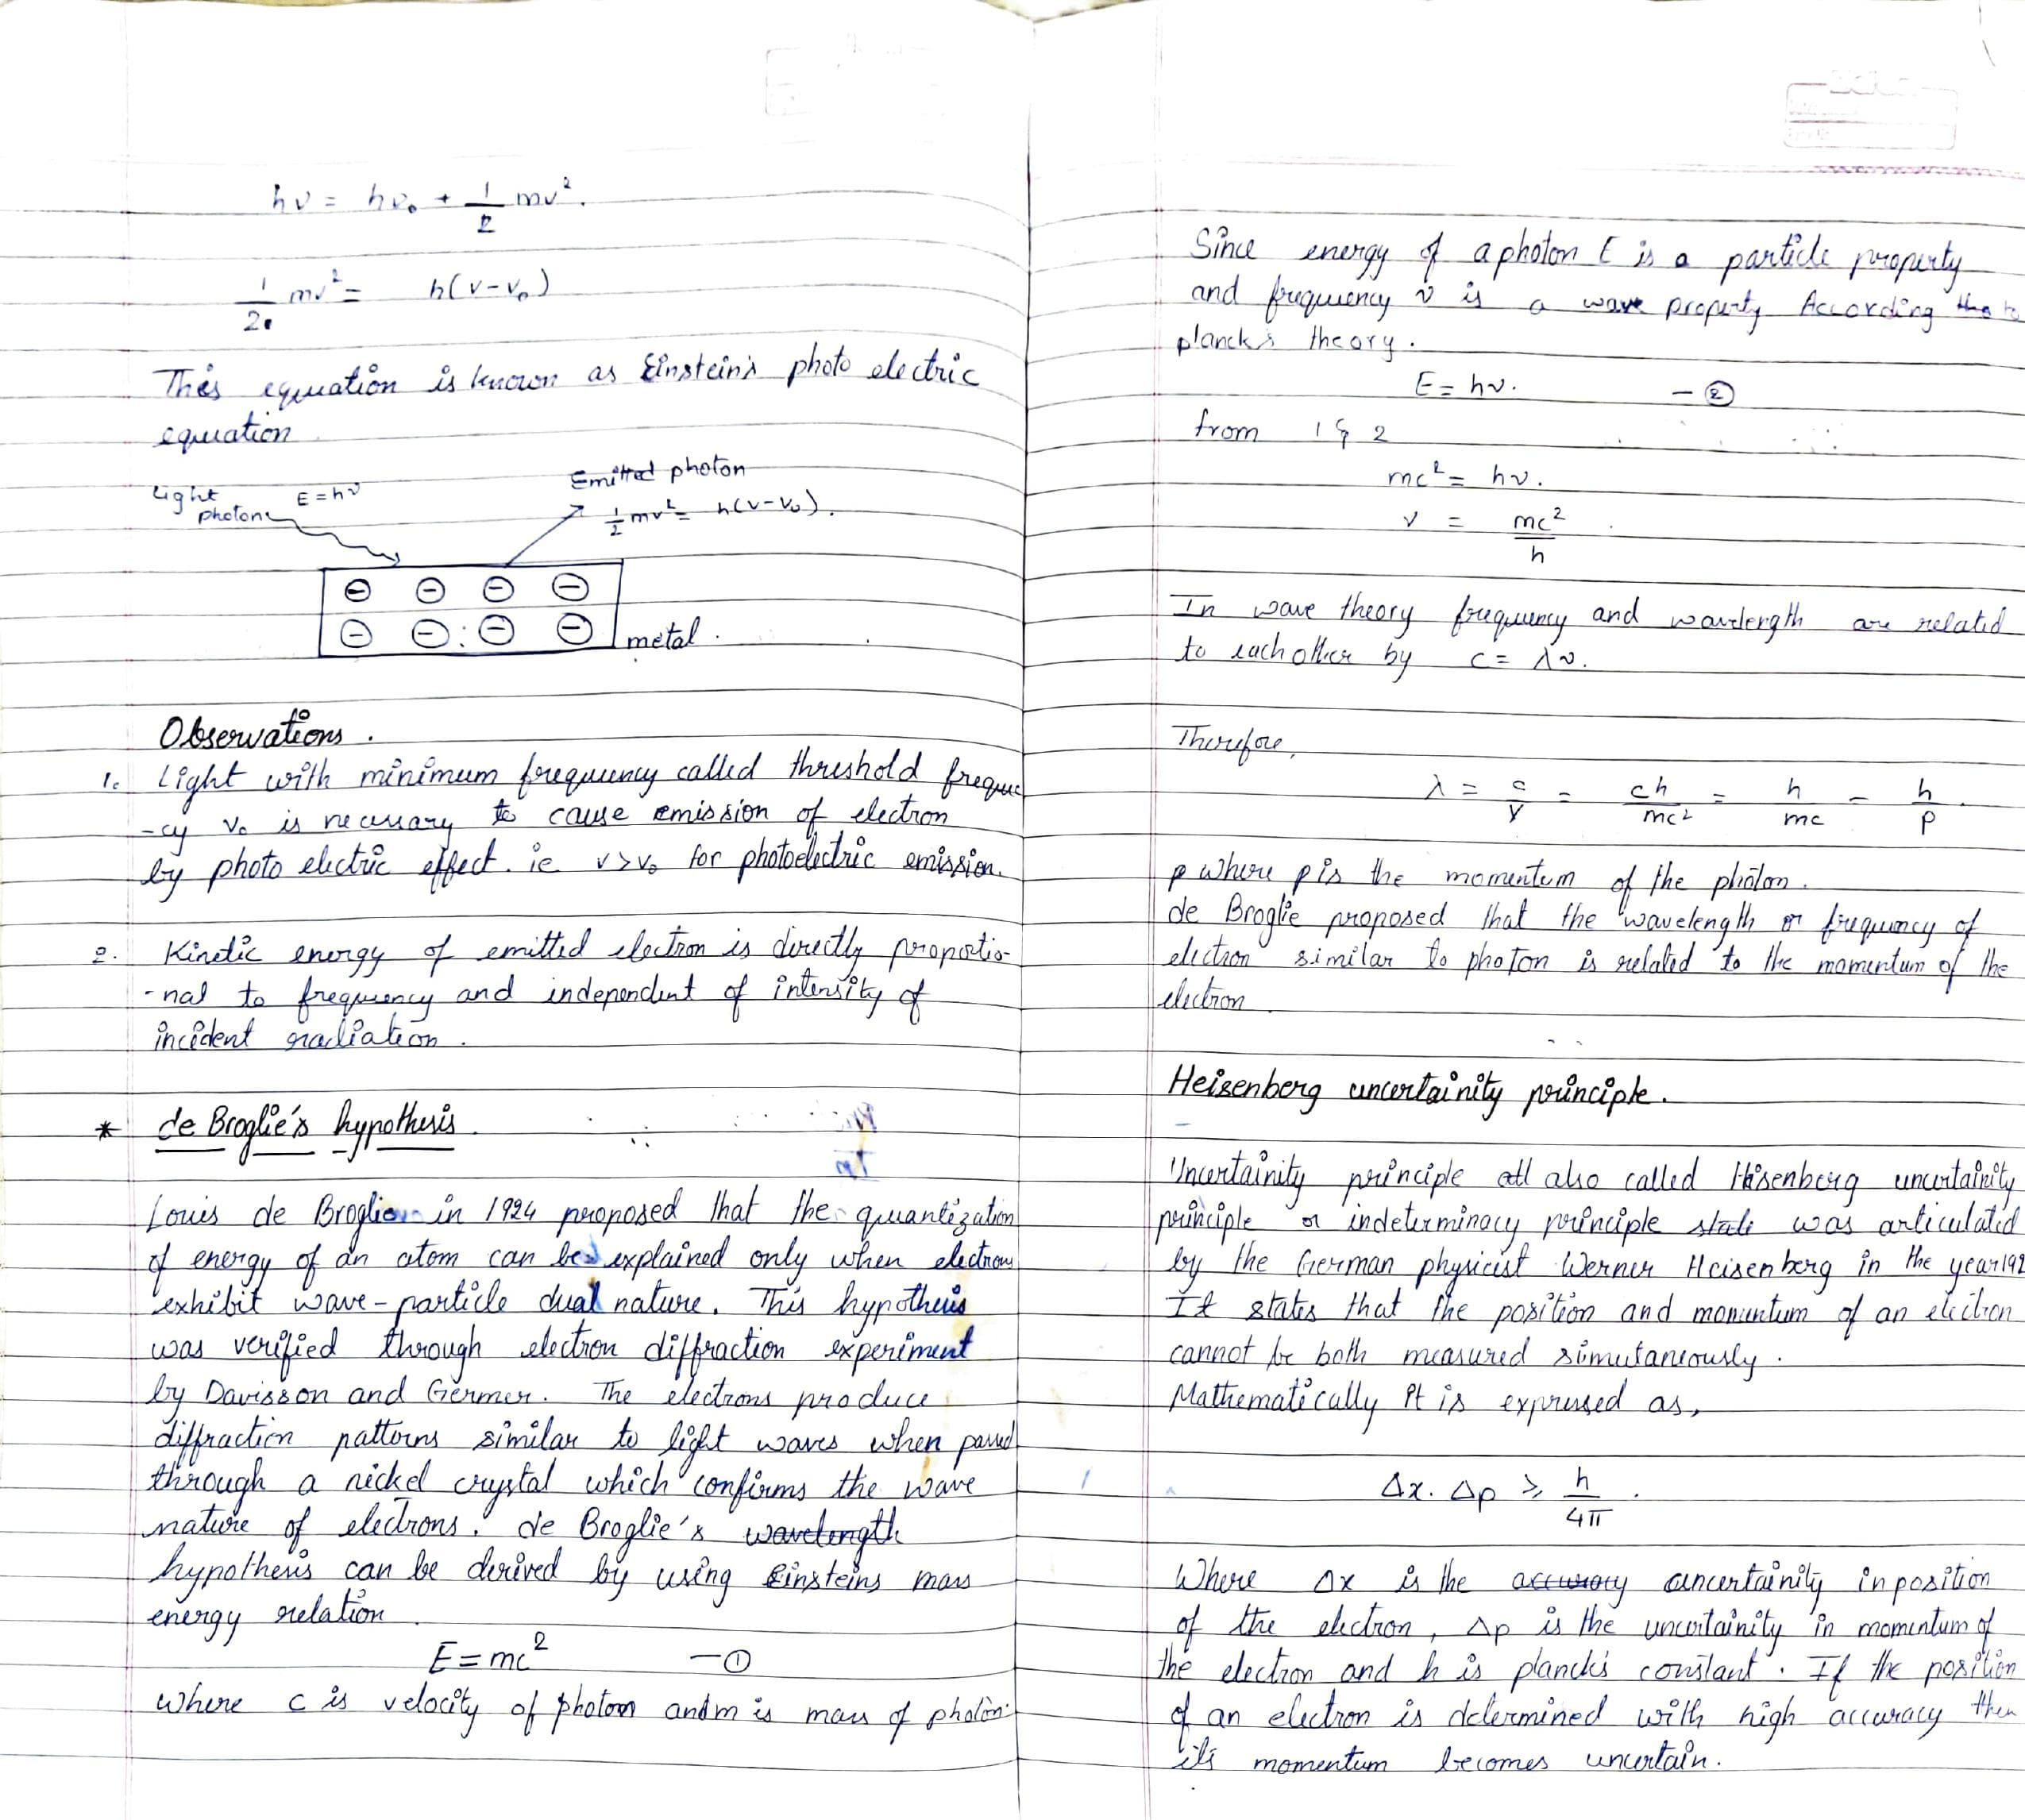 hν = hν₀ + 1/2 mv².
1/2 mv² = h(ν-ν₀)
This equation is known as Einstein's photo electric
equation
Light photon E = hν
Emitted photon
1/2 mv² = h(ν-ν₀).
metal.
Observations.
1. Light with minimum frequency called threshold frequen
-cy ν₀ is necessary to cause emission of electron
by photo electric effect. ie ν>ν₀ for photoelectric emission.
2. Kinetic energy of emitted electron is directly proportio-
-nal to frequency and independent of intensity of
incident radiation.
* de Broglie's hypothesis
Louis de Broglie in 1924 proposed that the quantization
of energy of an atom can be explained only when electrons
exhibit wave-particle dual nature. This hypothesis
was verified through electron diffraction experiment
by Davisson and Germer. The electrons produce
diffraction patterns similar to light waves when passed
through a nickel crystal which confirms the wave
nature of electrons. de Broglie's wavelength
hypothesis can be derived by using Einsteins mass
energy relation
E = mc² - ①
where c is velocity of photon and m is mass of photon.
Since energy of a photon E is a particle property
and frequency ν is a wave property According to
planck's theory.
E = hν. - ②
from 1 & 2
mc² = hν.
ν = mc²/h
In wave theory frequency and wavelength are related
to each other by c = λν.
Therefore,
λ = c/ν = ch/mc² = h/mc = h/p.
p where p is the momentum of the photon.
de Broglie proposed that the wavelength or frequency of
electron similar to photon is related to the momentum of the
electron
Heisenberg uncertainity principle.
Uncertainity principle all also called Hisenberg uncertainity
principle or indeterminacy principle state was articulated
by the German physicist Werner Heisenberg in the year 192
It states that the position and momentum of an electron
cannot be both measured simutaneously.
Mathematically it is expressed as,
Δx. Δp ≥ h/4π.
Where Δx is the accuracy uncertainity in position
of the electron, Δp is the uncertainity in momentum of
the electron and h is planck's constant. If the position
of an electron is determined with high accuracy then
its momentum becomes uncertain.